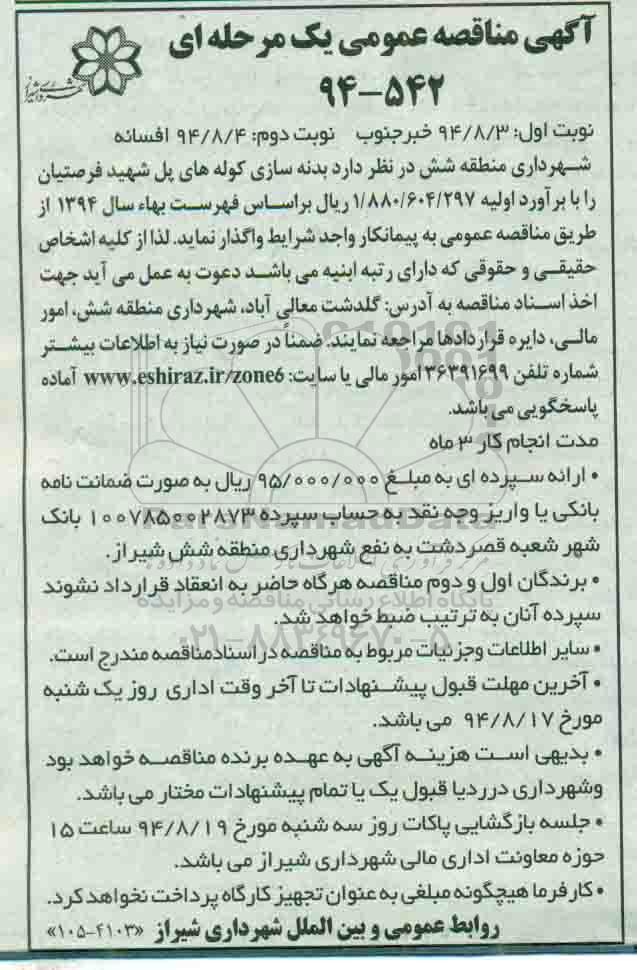 آگهی مناقصه عمومی یک مرحله ای
۹۴-۵۴۲
شهرداری شیراز
نوبت اول: ۹۴/۸/۳ خبرجنوب نوبت دوم: ۹۴/۸/۴ افسانه
شهرداری منطقه شش در نظر دارد بدنه سازی کوله های پل شهید فرصتیان
را با برآورد اولیه ۱/۸۸۰/۶۰۴/۲۹۷ ریال براساس فهرست بهاء سال ۱۳۹۴ از
طریق مناقصه عمومی به پیمانکار واجد شرایط واگذار نماید. لذا از کلیه اشخاص
حقیقی و حقوقی که دارای رتبه ابنیه می باشد دعوت به عمل می آید جهت
اخذ اسناد مناقصه به آدرس: گلدشت معالی آباد، شهرداری منطقه شش، امور
مالی، دایره قراردادها مراجعه نمایند. ضمناً در صورت نیاز به اطلاعات بیشتر
شماره تلفن ۳۶۳۹۱۶۹۹ امور مالی یا سایت: www.eshiraz.ir/zone6 آماده
پاسخگویی می باشد.
مدت انجام کار ۳ ماه
• ارائه سپرده ای به مبلغ ۹۵/۰۰۰/۰۰۰ ریال به صورت ضمانت نامه
بانکی یا واریز وجه نقد به حساب سپرده ۱۰۰۷۸۵۰۰۲۸۷۳ بانک
شهر شعبه قصردشت به نفع شهرداری منطقه شش شیراز.
• برندگان اول و دوم مناقصه هرگاه حاضر به انعقاد قرارداد نشوند
سپرده آنان به ترتیب ضبط خواهد شد.
• سایر اطلاعات وجزئیات مربوط به مناقصه در اسنادمناقصه مندرج است.
• آخرین مهلت قبول پیشنهادات تا آخر وقت اداری روز یک شنبه
مورخ ۹۴/۸/۱۷ می باشد.
• بدیهی است هزینه آگهی به عهده برنده مناقصه خواهد بود
وشهرداری درردیا قبول یک یا تمام پیشنهادات مختار می باشد.
• جلسه بازگشایی پاکات روز سه شنبه مورخ ۹۴/۸/۱۹ ساعت ۱۵
حوزه معاونت اداری مالی شهرداری شیراز می باشد.
• کارفرما هیچگونه مبلغی به عنوان تجهیز کارگاه پرداخت نخواهد کرد.
روابط عمومی و بین الملل شهرداری شیراز «۴۱۰۳-۱۰۵»
ParsNamadData
پایگاه اطلاع رسانی مناقصه و مزایده
۰۲۱-۸۸۳۴۹۶۷۰-۵